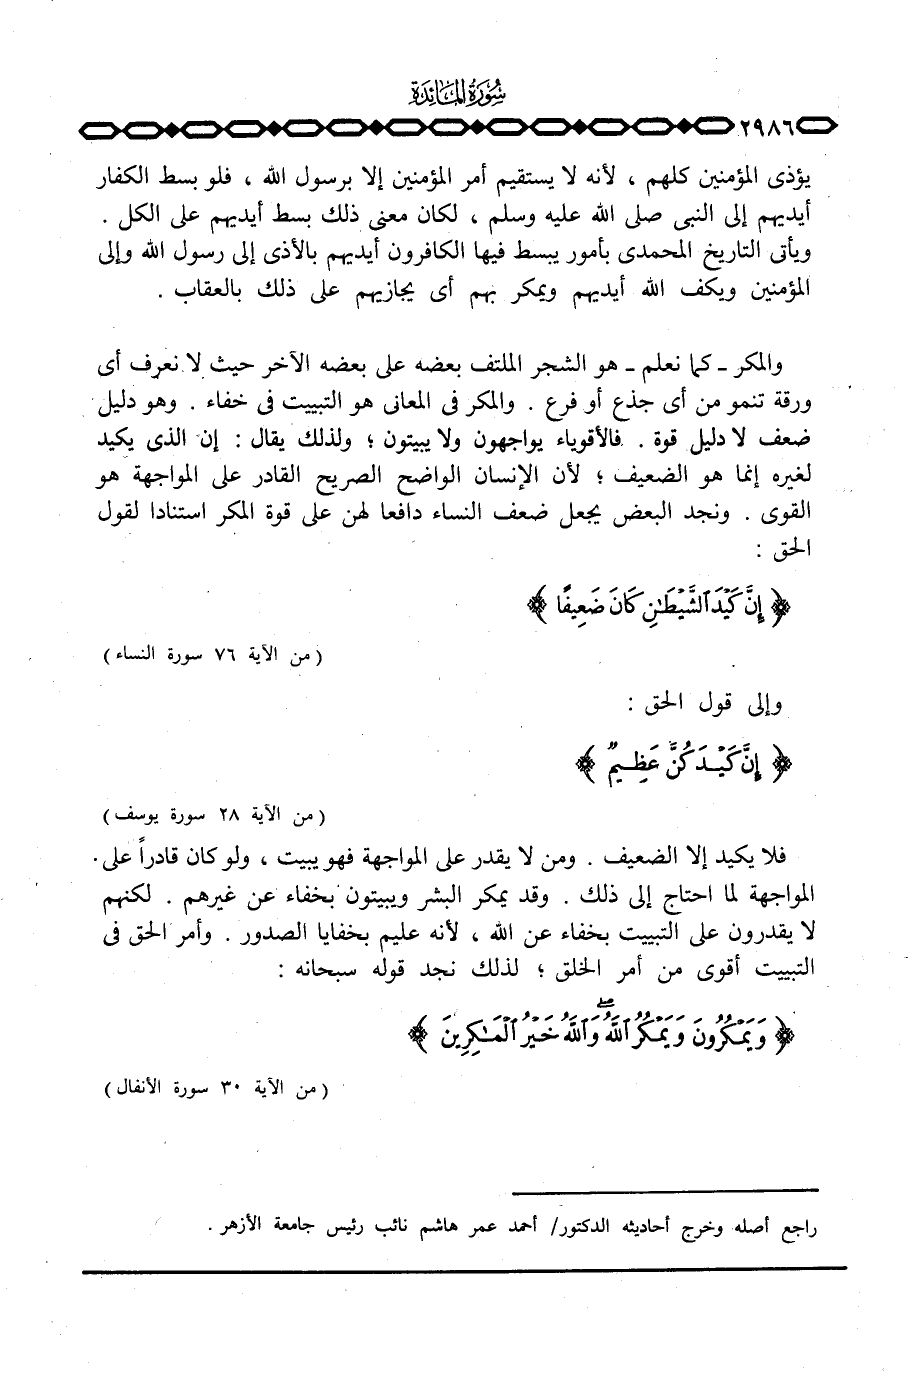 سُورَةُ المَائِدَةِ
٢٩٨٦
يؤذى المؤمنين كلهم ، لأنه لا يستقيم أمر المؤمنين إلا برسول الله ، فلو بسط الكفار
أيديهم إلى النبى صلى الله عليه وسلم ، لكان معنى ذلك بسط أيديهم على الكل .
ويأتى التاريخ المحمدى بأمور يبسط فيها الكافرون أيديهم بالأذى إلى رسول الله وإلى
المؤمنين ويكف الله أيديهم ويمكر بهم أى يجازيهم على ذلك بالعقاب .
والمكر ـ كما نعلم ـ هو الشجر الملتف بعضه على بعضه الآخر حيث لا نعرف أى
ورقة تنمو من أى جذع أو فرع . والمكر فى المعانى هو التبييت فى خفاء . وهو دليل
ضعف لا دليل قوة . فالأقوياء يواجهون ولا يبيتون ؛ ولذلك يقال : إن الذى يكيد
لغيره إنما هو الضعيف ؛ لأن الإنسان الواضح الصريح القادر على المواجهة هو
القوى . ونجد البعض يجعل ضعف النساء دافعا لهن على قوة المكر استنادا لقول
الحق :
﴿ إِنَّ كَيْدَ ٱلشَّيْطَـٰنِ كَانَ ضَعِيفًا ﴾
( من الآية ٧٦ سورة النساء )
وإلى قول الحق :
﴿ إِنَّ كَيْدَكُنَّ عَظِيمٌ ﴾
( من الآية ٢٨ سورة يوسف )
فلا يكيد إلا الضعيف . ومن لا يقدر على المواجهة فهو يبيت ، ولو كان قادراً على
المواجهة لما احتاج إلى ذلك . وقد يمكر البشر ويبيتون بخفاء عن غيرهم . لكنهم
لا يقدرون على التبييت بخفاء عن الله ، لأنه عليم بخفايا الصدور . وأمر الحق فى
التبييت أقوى من أمر الخلق ؛ لذلك نجد قوله سبحانه :
﴿ وَيَمْكُرُونَ وَيَمْكُرُ ٱللَّهُ ۖ وَٱللَّهُ خَيْرُ ٱلْمَـٰكِرِينَ ﴾
( من الآية ٣٠ سورة الأنفال )
راجع أصله وخرج أحاديثه الدكتور/ أحمد عمر هاشم نائب رئيس جامعة الأزهر .